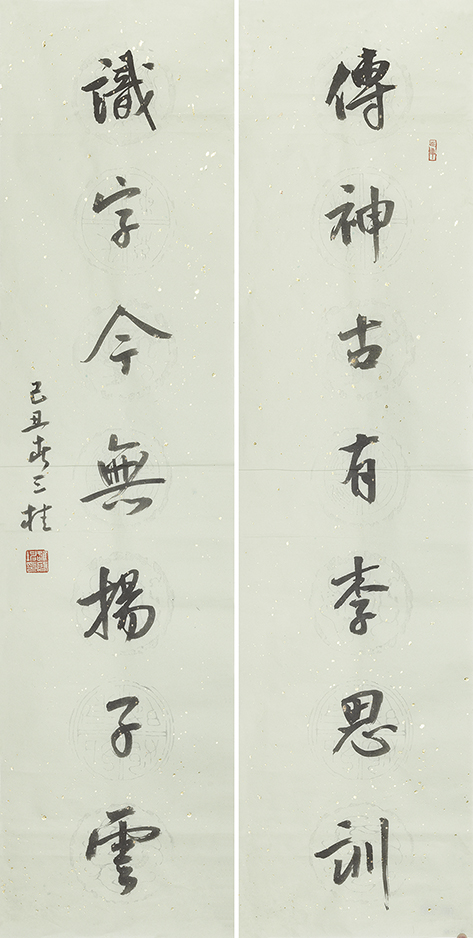 傳神古有李思訓
識字今無揚子雲
己丑春三桂